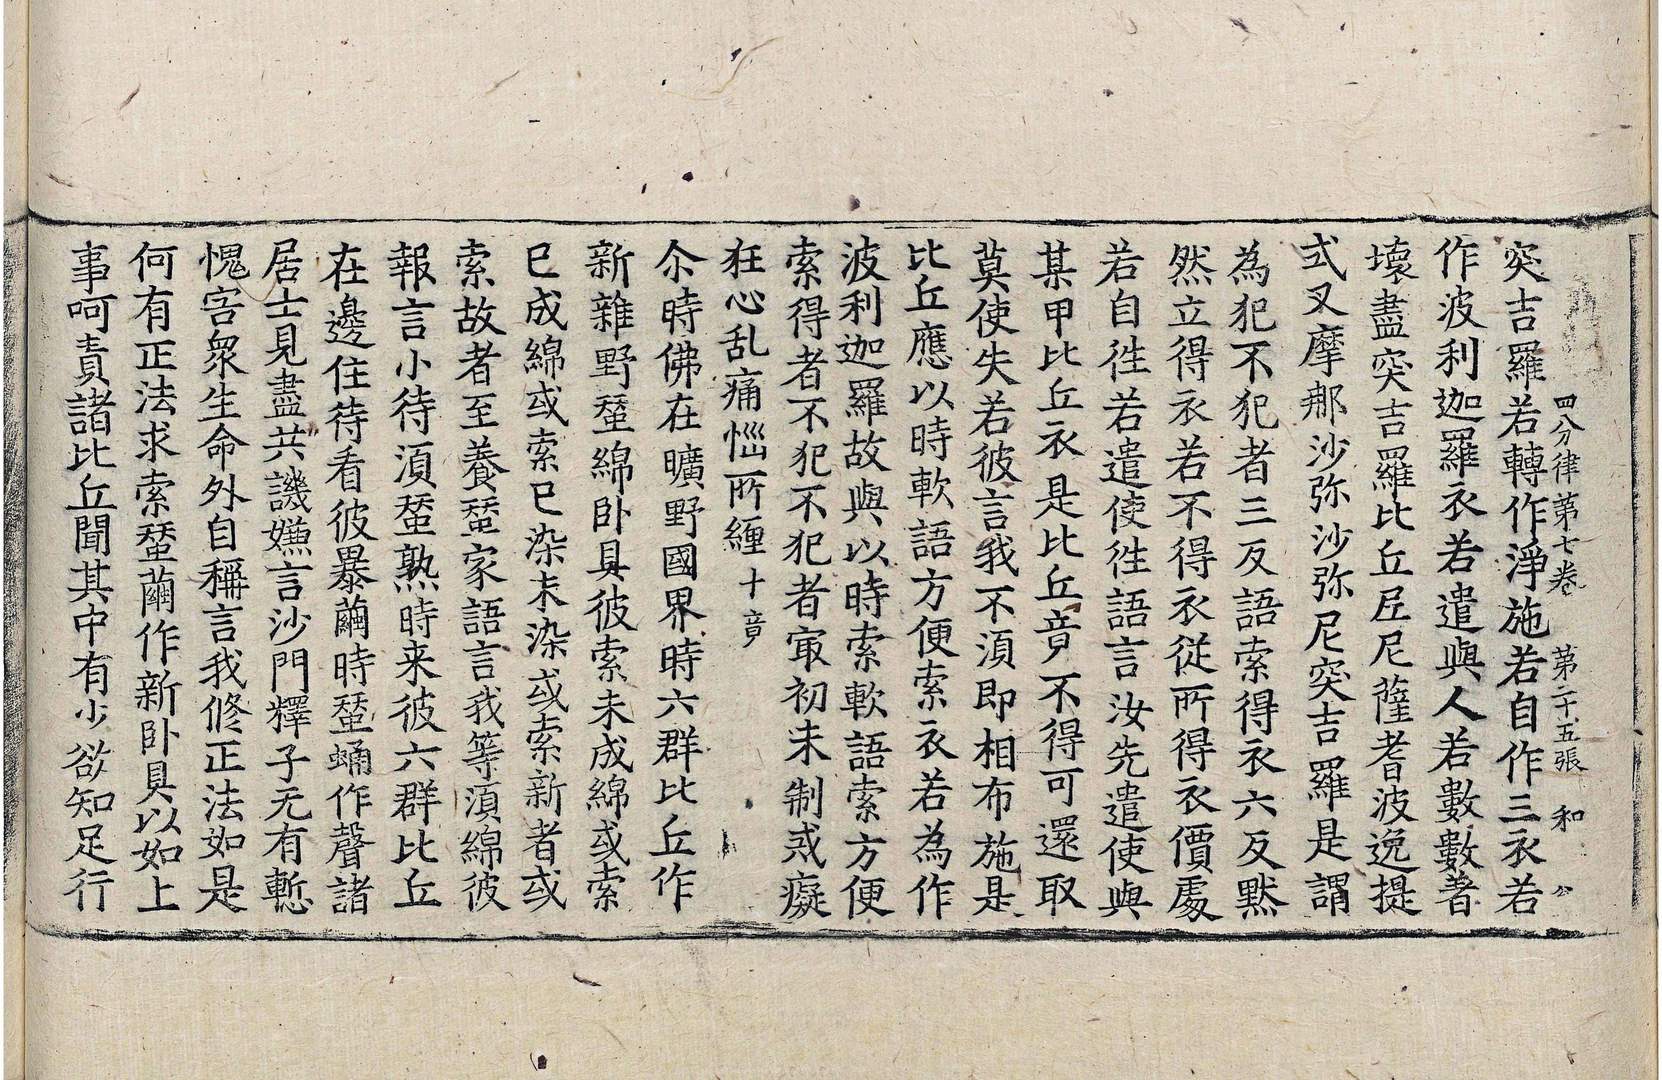 四分律第七卷 第二十五張 和 公
突吉羅若轉作淨施若自作三衣若
作波利迦羅衣若遣與人若數數著
壞盡突吉羅比丘尼尼薩耆波逸提
式叉摩那沙弥沙弥尼突吉羅是謂
為犯不犯者三反語索得衣六反默
然立得衣若不得衣從所得衣價處
若自往若遣使往語言汝先遣使與
某甲比丘衣是比丘竟不得可還取
莫使失若彼言我不湏即相布施是
比丘應以時軟語方便索衣若為作
波利迦羅故與以時索軟語索方便
索得者不犯不犯者冣初未制戒癡
狂心乱痛惱所纏十竟
尒時佛在曠野國界時六群比丘作
新雜野蠶綿卧具彼索未成綿或索
已成綿或索已染未染或索新者或
索故者至養蠶家語言我等湏綿彼
報言小待湏蠶熟時来彼六群比丘
在邊住待看彼暴繭時蠶蛹作聲諸
居士見盡共譏嫌言沙門釋子无有慙
愧害衆生命外自稱言我修正法如是
何有正法求索蠶繭作新卧具以如上
事呵責諸比丘聞其中有少欲知足行